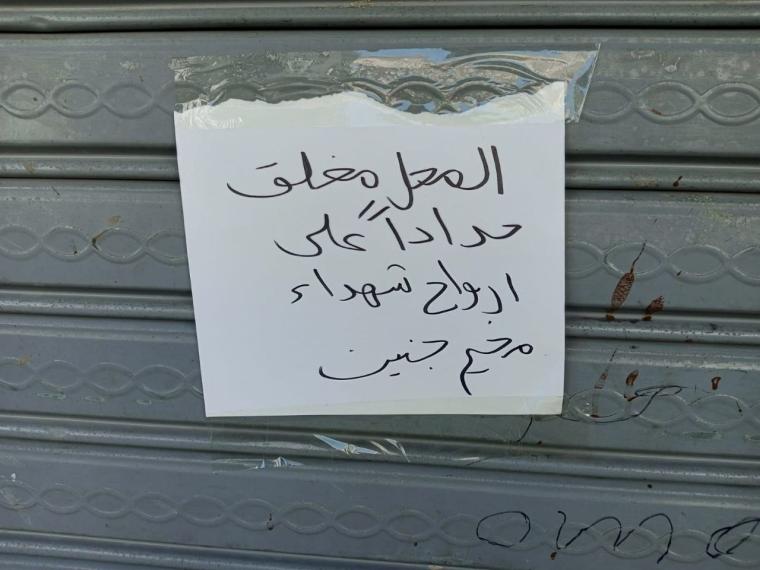 المحل مغلق
حداداً على
ارواح شهداء
مخيم جنين